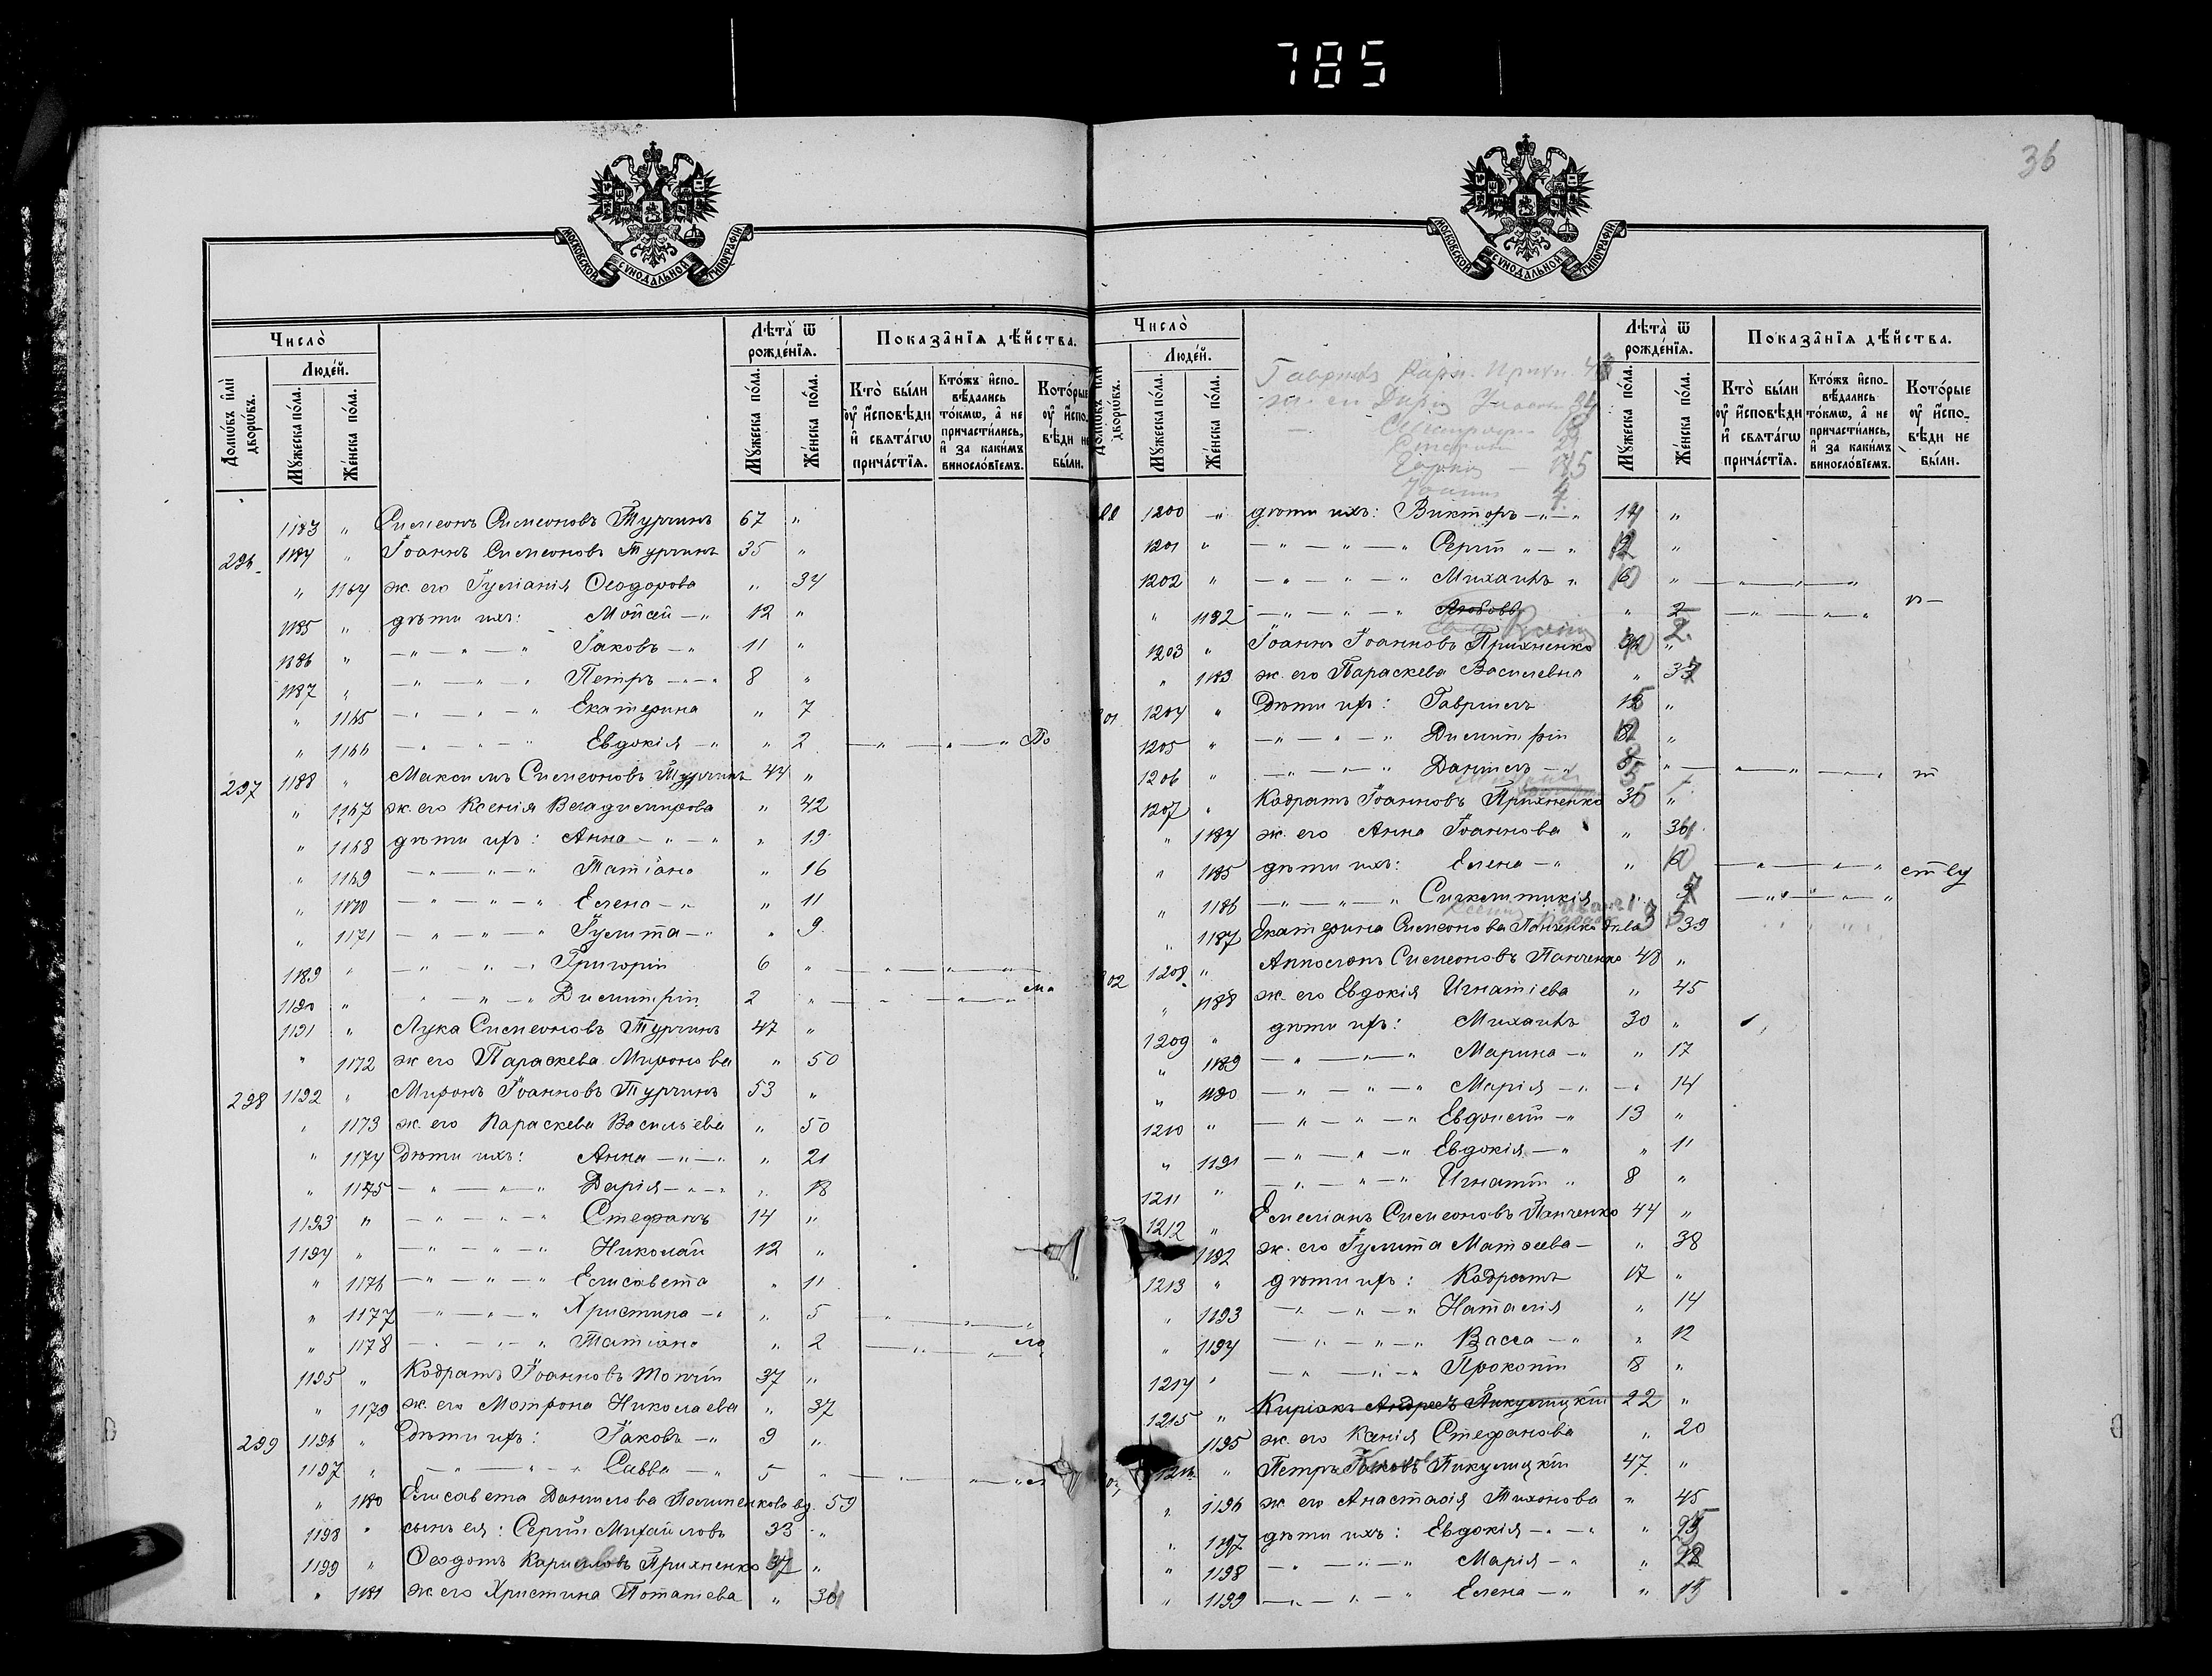 785
36
МОСКОВСКОЙ СѴНОДАЛЬНОЙ ТИПОГРАФІИ
Число̀
Лѣта̀ ѿ рожде́нїѧ.
Показа̂нїѧ дѣ́йства.
Домѡ́въ и҆лѝ дворѡ́въ.
Люде́й.
Мꙋ́жеска по́ла.
Же́нска по́ла.
Мꙋ́жеска по́ла.
Же́нска по́ла.
Кто̀ бы́ли ᲂу҆ и҆сповѣ́ди и҆ свѧта́гѡ прича́стїѧ.
Кто́жъ и҆спо-вѣ́дались то́кмѡ, а҆ не причасти́лись, и҆ за каки́мъ винослові́емъ.
Кото́рые ᲂу҆ и҆спо-вѣ́ди не бы́ли.
1183 " Симеонъ Симеоновъ Турчинъ 67 "
296 1184 " Іоаннъ Симеоновъ Турчинъ 35 "
" 1164 ж. его Іуліанія Ѳеодорова " 34
1185 " дѣти ихъ: Мойсей — " 12 "
1186 " — " — " — " Іаковъ — " 11 "
1187 " — " — " — " Петръ — " — " 8 "
" 1165 — " — " — " Екатерина " 7
" 1166 — " — " — " Евдокія — " " 2 — " — " — "
297 1188 " Максимъ Симеоновъ Турчинъ 44 "
" 1167 ж. его Ксенія Владимирова " 42
" 1168 дѣти ихъ: Анна — " — " " 19
" 1169 — " — " — " Татіана " 16
" 1170 — " — " — " Елена — " " 11
" 1171 — " — " — " Іулитта — " " 9
1189 " — " — " — " Григорій 6 " — " — " — "
1190 " " — " — " Димитрій 2 " — " — " — "
1191 " Лука Симеоновъ Турчинъ 47 "
" 1172 ж его Параскева Миронова " 50
298 1192 " Миронъ Іоанновъ Турчинъ 53 "
" 1173 ж. его Параскева Васильева " 50
" 1174 Дѣти ихъ: Анна — " — " " 21
" 1175 — " — " — " Дарія — " — " " 18
1193 " — " — " — " Стефанъ 14 "
1194 " — " — " — " Николай 12 "
" 1176 — " — " — " Елисавета " 11
" 1177 — " — " — " Христина — " " 5 — " — " — "
" 1178 — " — " — " Татіана " 2 — " — " — "
1195 " Кодратъ Іоанновъ 37 "
" 1179 ж. его Мотрона Николаева " 37
299 1196 " Дѣти ихъ: Іаковъ — " 9 "
1197 " — " — " — " Савва — " 5 " — " — " — "
" 1180 Елисавета Даниилова вд. 59
1198 " сынъ ея: Сергій Михаиловъ 33 "
1199 " Ѳеодотъ Прихненко 37 "
" 1181 ж его Христина Потапіева " 36
Число̀
Лѣта̀ ѿ рожде́нїѧ.
Показа̂нїѧ дѣ́йства.
Домѡ́въ и҆лѝ дворѡ́въ.
Люде́й.
Мꙋ́жеска по́ла.
Же́нска по́ла.
Мꙋ́жеска по́ла.
Же́нска по́ла.
Кто̀ бы́ли ᲂу҆ и҆сповѣ́ди и҆ свѧта́гѡ прича́стїѧ.
Кто́жъ и҆спо-вѣ́дались то́кмѡ, а҆ не причасти́лись, и҆ за каки́мъ винослові́емъ.
Кото́рые ᲂу҆ и҆спо-вѣ́ди не бы́ли.
1200 " дѣти ихъ: Викторъ — " — " 14 "
1201 " — " — " — " Сергій " — " 12 "
1202 " — " — " — " Михаилъ " 10 " — " — " — "
" 1182 — " — " — " Любовь " 2 — " — " — "
1203 " Іоаннъ Іоанновъ Прихненко "
" 1183 ж. его Параскева Василевна "
301 1204 " Дѣти ихъ: Гавріилъ "
1205 " — " — " — " Димитрій "
1206 " — " — " — " Даніилъ — " " — " — " — "
1207 " Кодратъ Іоанновъ Прихненко "
" 1184 ж. его Анна Іоаннова " 36
" 1185 дѣти ихъ: Елена — " " — " — " — "
" 1186 — " — " — " Сигклитикія " — " — " — "
" 1187 Екатерина Симеонова Панченкова 39
302 1208 " Апполонъ Симеоновъ Панченко 48 "
" 1188 ж. его Евдокія Игнатіева " 45
1209 " дѣти ихъ: Михаилъ 30 "
" 1189 — " — " — " Марина — " " 17
" 1190 — " — " — " Марія — " " 14
1210 " — " — " — " 13 "
" 1191 — " — " — " Евдокія — " " 11
1211 " — " — " — " Игнатій " 8 "
1212 " Емеліанъ Симеоновъ Панченко 44 "
1192 ж. его Іулитта Матѳеева — " 38
1213 " дѣти ихъ: Кодратъ 17 "
" 1193 — " — " — " Наталія " 14
" 1194 — " — " — " Васса — " " 12
1214 " — " — " — " Прокопій 8 "
1215 " Киріакъ Андреевъ Пикулицкій 22 "
1195 ж. его Ксенія Стефанова " 20
1216 " Петръ Пикулицкій 47 "
" 1196 ж его Анастасія Тихонова " 45
" 1197 дѣти ихъ: Евдокія — " — " "
" 1198 — " — " — " Марія — " "
" 1199 — " — " — " Елена — " " 15